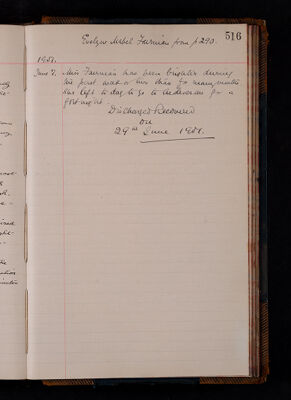 516
Evelyn Mabel Fairman from p 290.
1901.
June 7. Miss Fairman has been brighter during
the past week or two than for many months
Has left to day to go to for a
fortnight.
Discharged Recovered
on
29th June 1901.